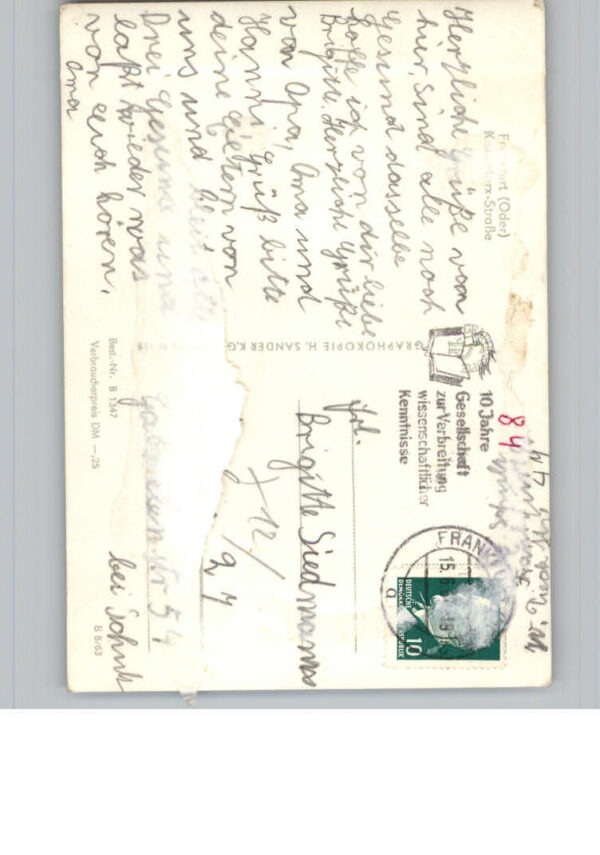 Frankfurt (Oder)
Karl-Marx-Straße
Herzliche Grüße von
hier, sind alle noch
Gesund dasselbe
hoffe ich von dir liebe
Brigitte. Herzliche Grüße
von Opa, Oma und
Hanni, Grüß bitte
deine Eltern von
uns und bleibt alle
Drei Gesund und
laßt wieder was
von euch hören.
Oma
Best.-Nr. B 1347
Verbraucherpreis DM -,25
GRAPHOKOPIE H. SANDER K.G.
10 Jahre
Gesellschaft
zur Verbreitung
wissenschaftlicher
Kenntnisse
84
FRANKF
15.
a
DEUTSCHE
DEMOKR. REPUBLIK
10
Frl.
Brigitte Siedmann
112/
27
54
bei
B 8/63